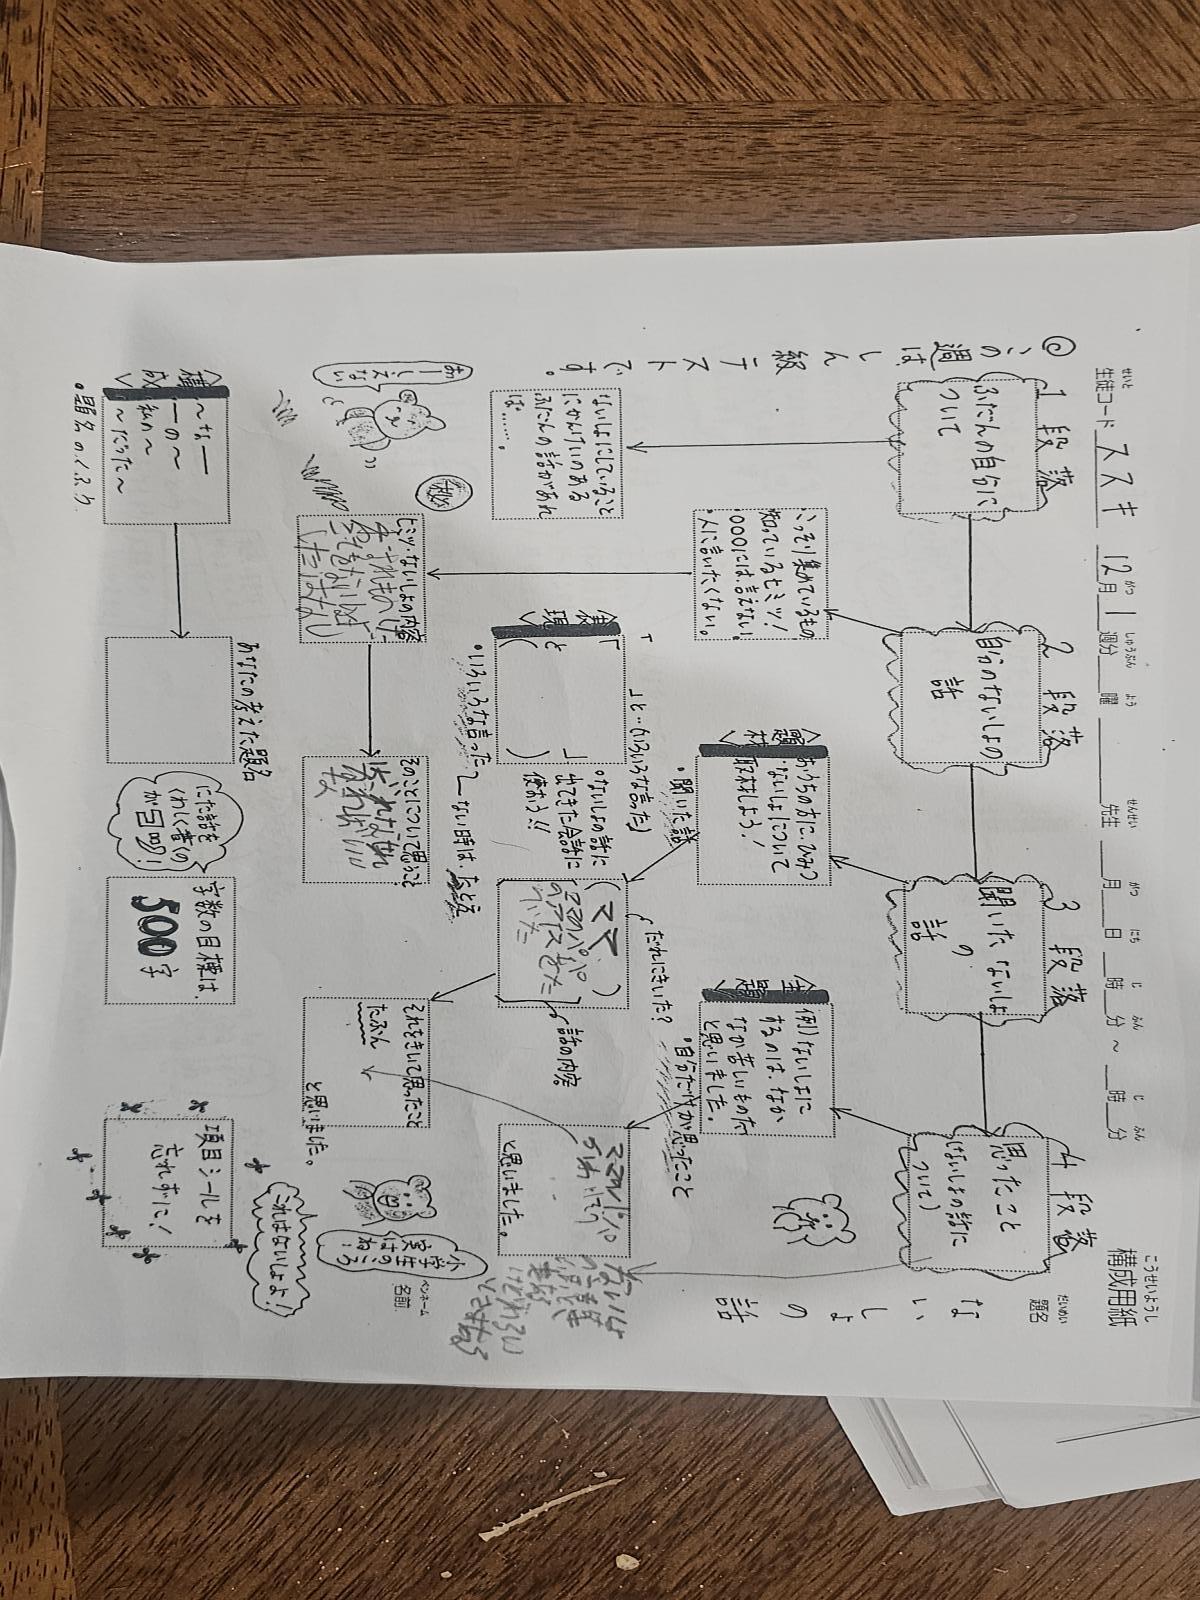 こうせいようし
構成用紙
だいめい
題名
ないしょの話
ペンネーム
名前
せいと
生徒コード ススキ
がつ しゅうぶん よう
12月1週分 曜
せんせい がつ にち じ ふん じ ふん
先生 月 日 時 分 ～ 時 分
この週は
しん級テストです。
1段落
ふだんの自分に
ついて
ないしょにしていること
にかんけいのある
ふだんの話があれ
ば……。
2段落
自分のないしょの
話
こっそり集めているもの
知っているヒミツ！
〇〇〇には、言えない。
人に言いたくない。
ヒミツ・ないしょの内容
そのことについて思うこと
3段落
聞いたないしょ
の
話
〈題材〉
おうちの方に、ひみつ
ないしょについて
取材しよう！
・聞いた話
だれにきいた？
（ママ）
話の内容
それをきいて思ったこと
たぶん
と思いました。
4段落
思ったこと
（ないしょの話に
ついて）
〈主題〉
例）ないしょに
するのは、なか
なか苦しいものだ
と思いました。
・自分だけが思ったこと
と思いました。
〈表現〉
「
」
と
（
）
「 」と…（いろいろな言った）
・いろいろな言った
〜ない時は、
・ないしょの話に
出てきた会話に
使おう！！
あーしえない
小学生
実はのころ
ね！
これはないしょよ！
〈構成〉
〜な―
―の〜
私の〜
〜だった〜
・題名のくふう
あなたの考えた題名
にた話を
くわしく書くの
が目的！
字数の目標は、
500字
項目シールを
忘れずに！